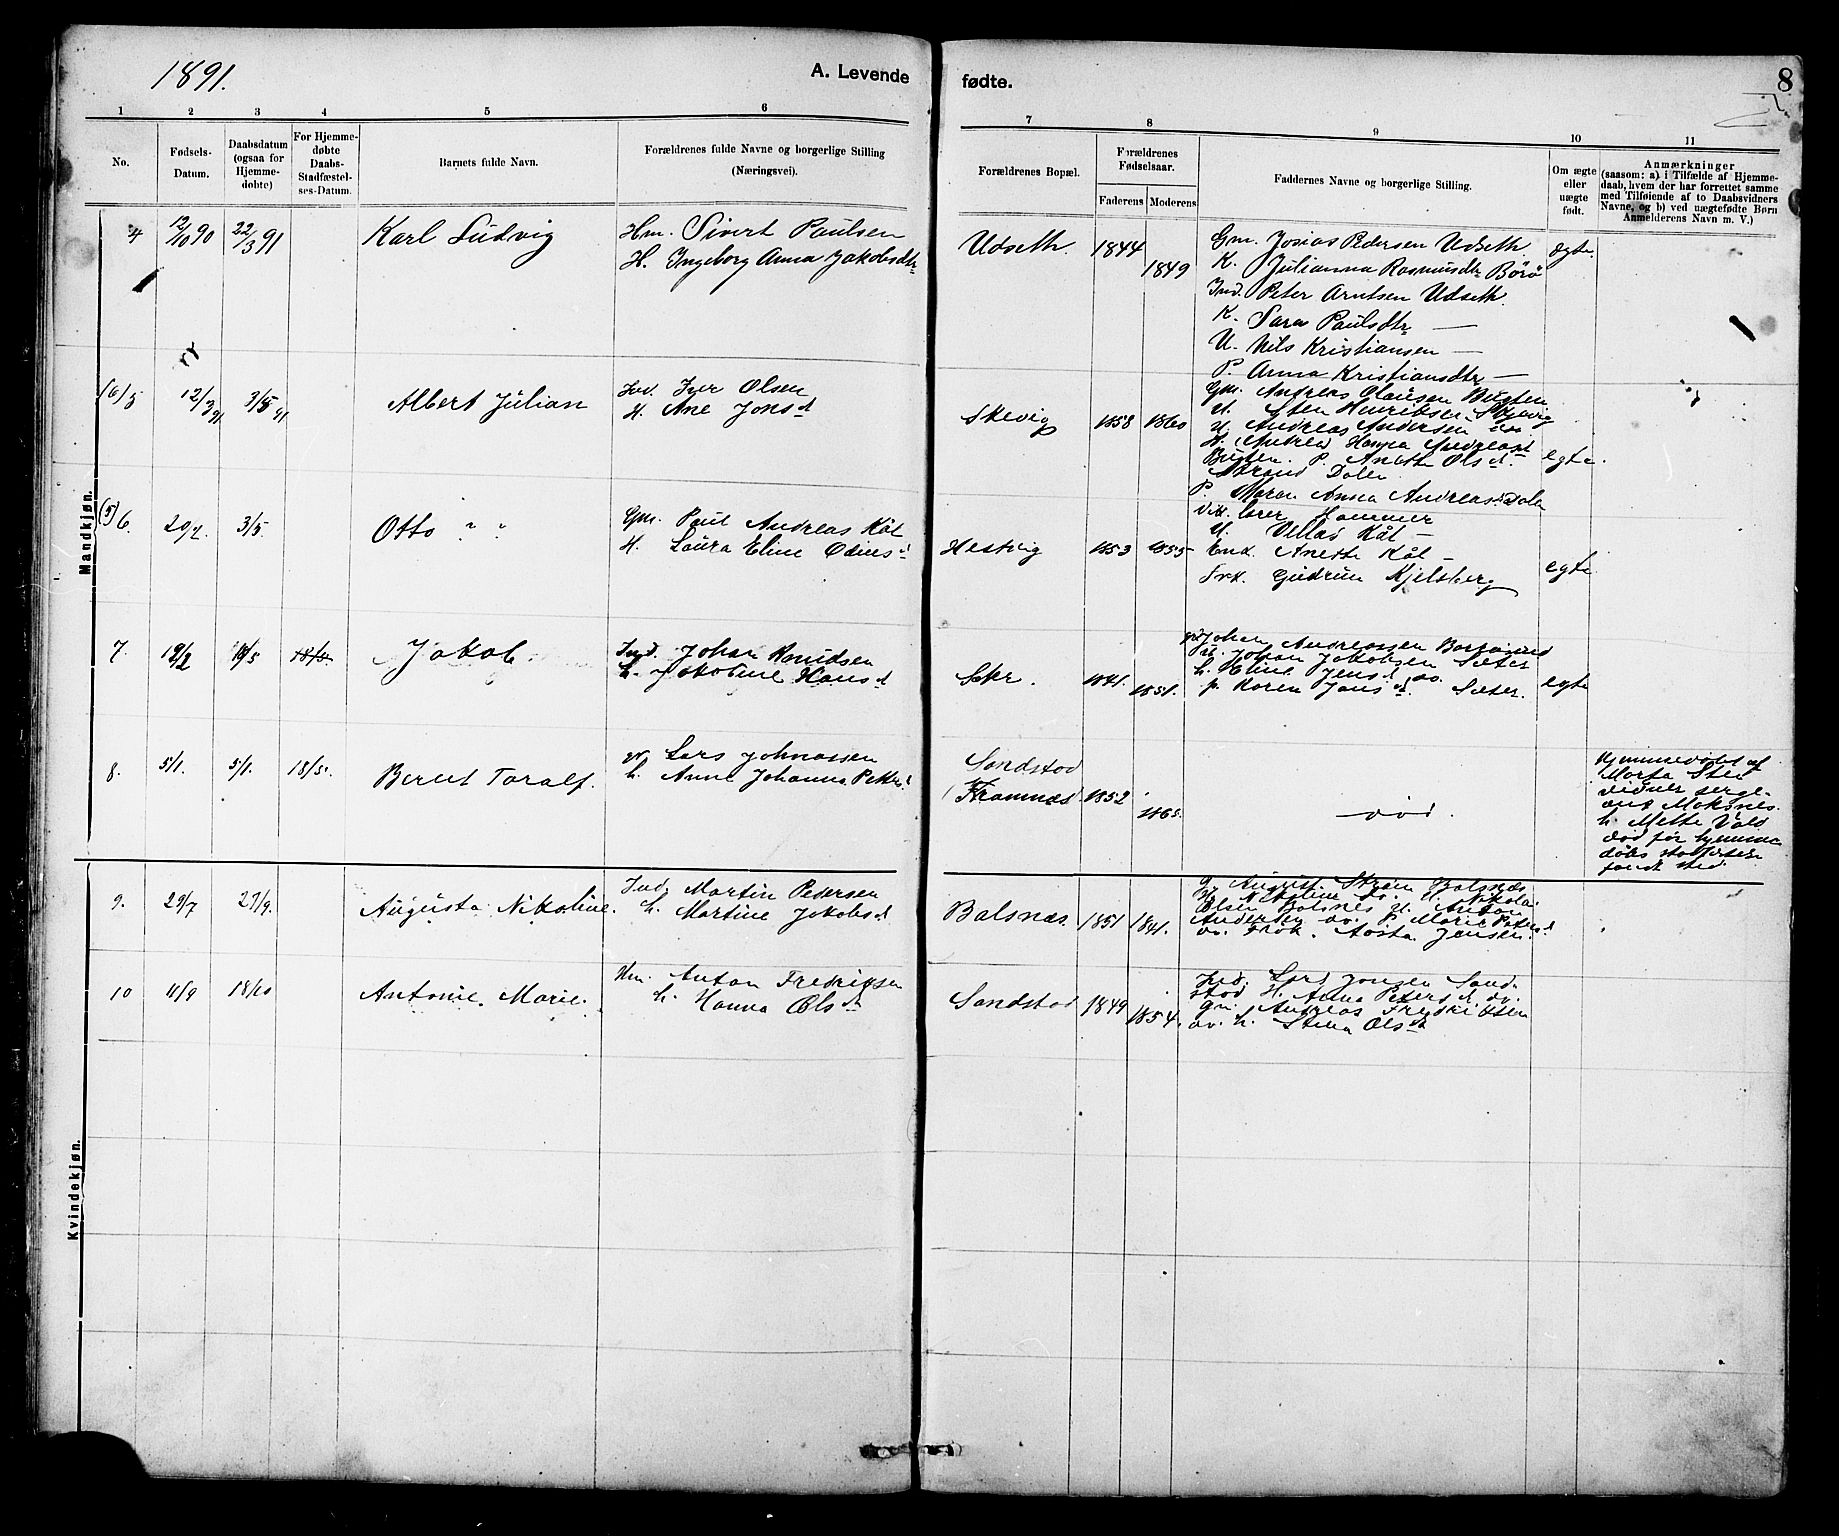 1891.
A. Levende fødte.
8
1 2 3 4 5 6 7 8 9 10 11
No.
Fødsels-Datum.
Daabsdatum (ogsaa for Hjemme-døbte)
For Hjemme-døbte Daabs-Stadfæstel-ses-Datum.
Barnets fulde Navn.
Forældrenes fulde Navne og borgerlige Stilling (Næringsvei).
Forældrenes Bopæl.
Forældrenes Fødselsaar.
Faderens Moderens
Faddernes Navne og borgerlige Stilling.
Om ægte eller uægte født.
Anmærkninger
(saasom: a) i Tilfælde af Hjemme-
daab, hvem der har forrettet samme
med Tilføiende af to Daabsvidners
Navne, og b) ved uægtefødte Børn
Anmelderens Navn m. V.)
Mandkjøn.
4 12/10 90 22/3 91 Karl Ludvig
Hm. Sivert Paulsen
H. Ingeborg Anna Jakobsdtr
Udseth 1844 1849
Gm. Josias Pedersen Udseth
K. Julianna Rasmusdtr Börö
Ind. Peter Arntsen Udseth
K. Sara Paulsdtr —
U. Nils Kristiansen —
P. Anna Kristiansdtr —
ægte
(6) 5 12/3 91 3/5 91 Albert Julian
Ind. Iver Olsen
H. Ane Jonsd
Skevig 1858 1860
Gm. Andreas Olausen Bugten
U. Sten Henriksen Skjevig
U. Andreas Andersen do
H. Andrea Hanna Andreasd
Bugten. P. Anette Olsd.
Strand Dolen
P. Maren Anna Andreasd Dolen
egte.
(5) 6 20/2. 3/5. Otto " "
Gm. Paul Andreas Kåt
H. Laura Eline Odinsd
Hestvig 1853 1855
Hammer
U. Kåt —
Enk. Anette Kåt —
Frk. Gudrun Kjelsberg
egte
7. 19/2 18/5 18/5 Jakob.
Ind. Johan Knudsen
h. Jakobine Hansd
Sætr. 1841. 1851.
Johan Andreassen
Johan Jakobsen Sæter
h. Eline Jensd do.
p. Karen Jonsd. Sæter.
egte
8. 5/1. 5/1. 18/5. Bernt Toralf.
gr Lars Johnassen
h. Anne Johanna Petersd
Sandstad
Framnæs 1852 1865.
— död.
Hjemmedöbt af
Marta Sten
vidner serge-
ant Moksnes.
h. Mette Vold
död för hjemme
döbs stadfæstelse
fandt sted
Kvindekjøn.
9. 29/7 27/9. Augusta Nikoline.
Ind. Martin Petersen
h. Martine Jakobsd
Balsnæs 1851 1841.
g. August Ström Balsnæs
h. Nikoline do. U. Nikolai
Olsen Balsnes U. Anton
Andersen do. P. Marie Petersd
do. Frök. Aasta Jensen.
10 11/9 18/10 Antonie. Marie.
Hm. Anton Fredriksen
h. Hanna Olsd
Sandstad 1849 1854.
Ind. Lars Jonsen Sand-
stad H. Anna Petersd do.
gm. Andreas Fredriksen
do. h. Stina Olsd